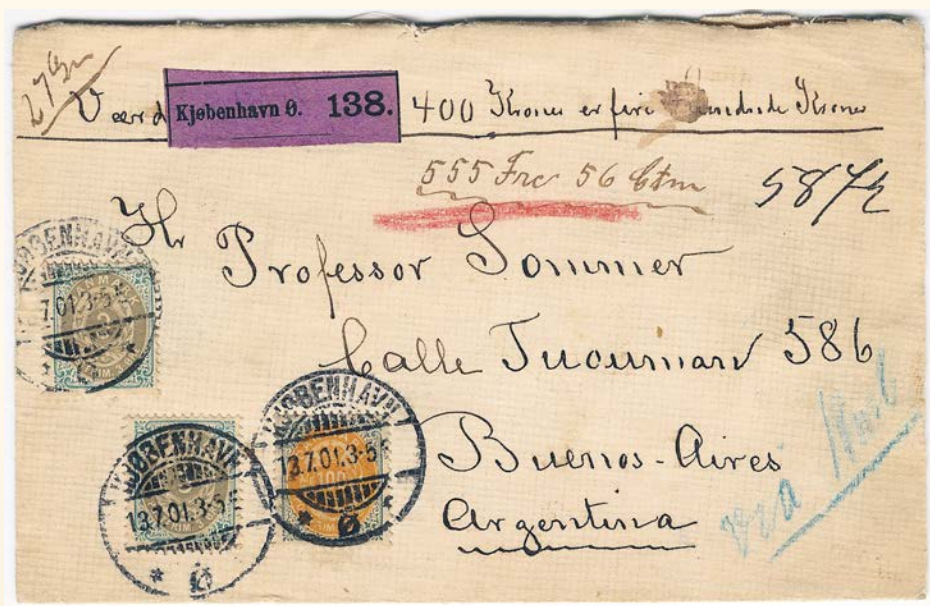 27 Gr
Værd
Kjøbenhavn Ø. 138.
400 Kroner er fire Hundrede Kroner
555 Frc 56 Ctm
Hr
Professor Sommer
Calle Tucuman 586
Buenos-Aires
Argentina
via
KJØBENHAVN
7.01.3-5
KJØBENHAVN
13.7.01.3-5
Ø
KJØBENHAVN
13.7.01.3-5
Ø
100